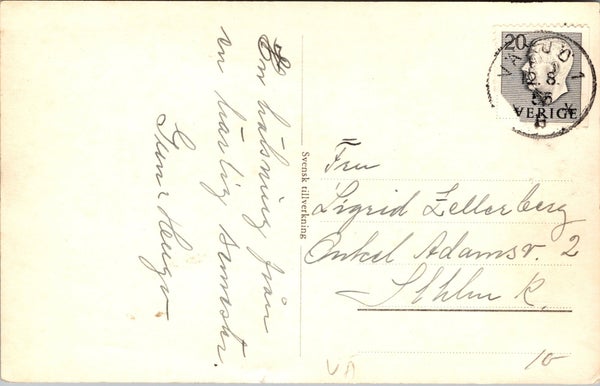 En hälsning från
en härlig semester.
Gun o Hugo.
Svensk tillverkning
20
SVERIGE
VÄXJÖ 1
12. 8.
56
Fru
Sigrid Zellerberg
Onkel Adamsv. 2
Sthlm K.
10